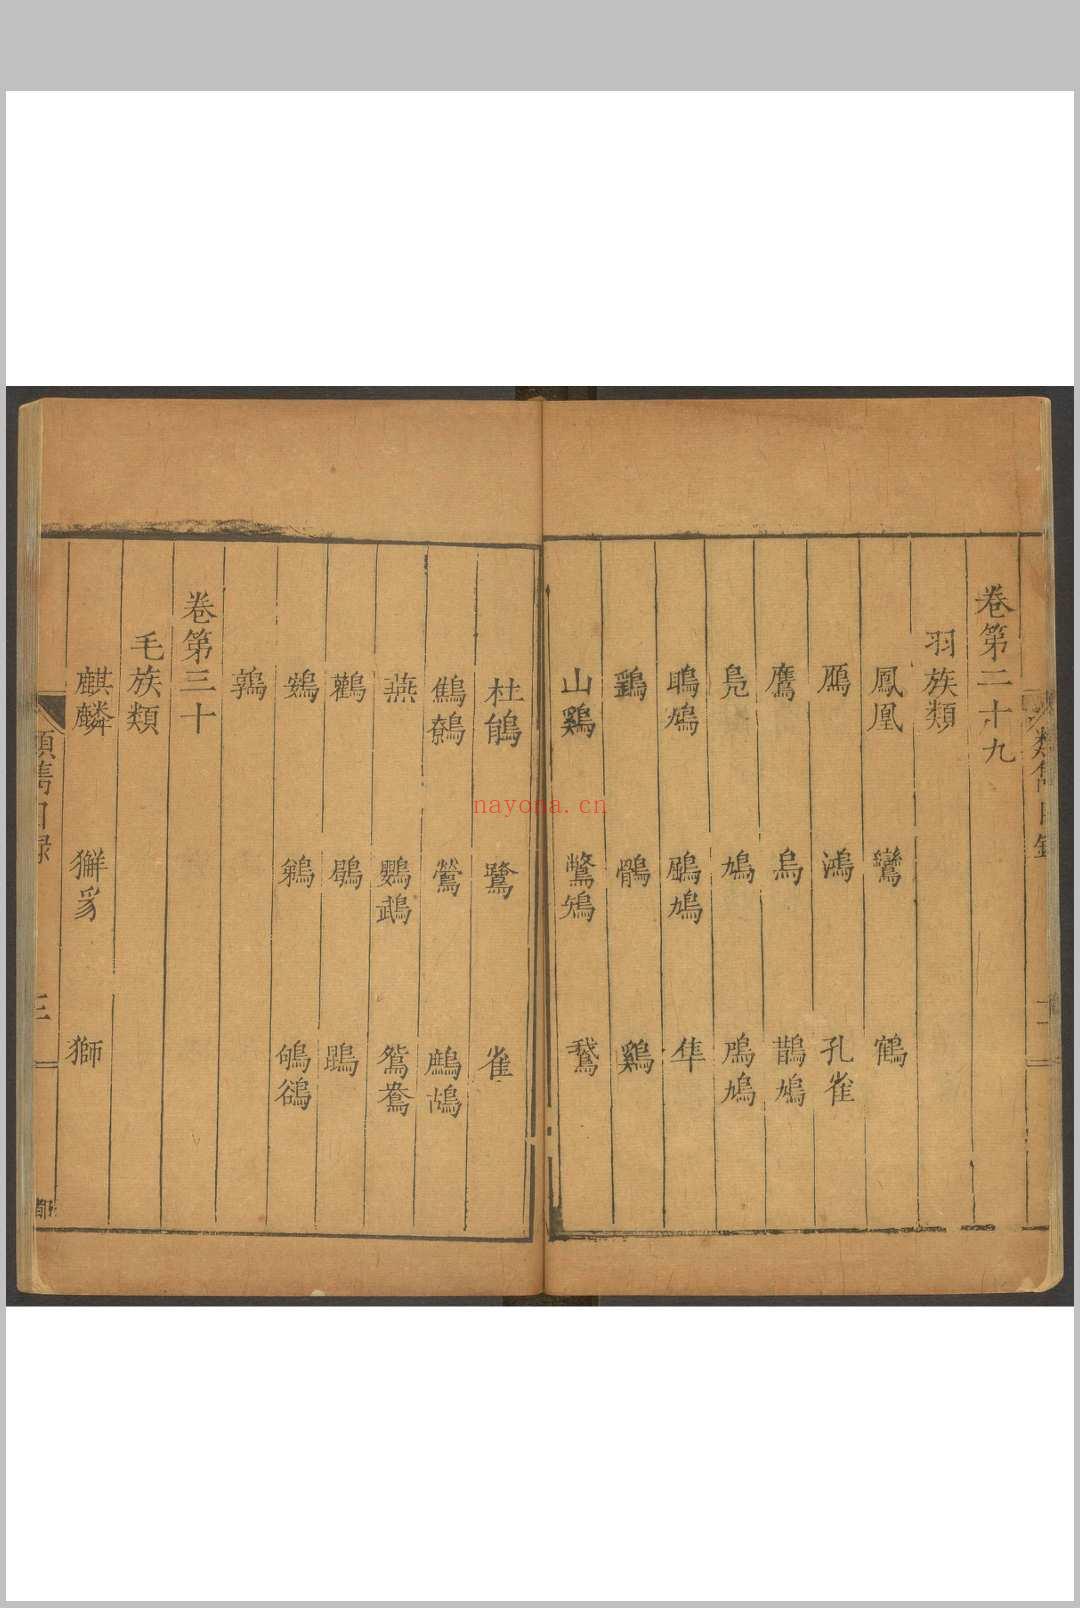 卷第二十九
羽族類
鳳凰 鸞 鶴
鴈 鴻 孔雀
鷹 烏 鵲鳩
鳧 鳩 鳲鳩
鵙鳩 鵰鳩 隼
鷂 鶻 鷄
山鷄 鷩雉 鵞
杜鵑 鷺 雀
鷦鷯 鶯 鷓鴣
燕 鸚鵡 鴛鴦
鸛 鶡 鵾
鷃 鵜 鴝鵒
鶉
卷第三十
毛族類
麒麟 獬豸 獅
類雋目録
三
nayona.cn